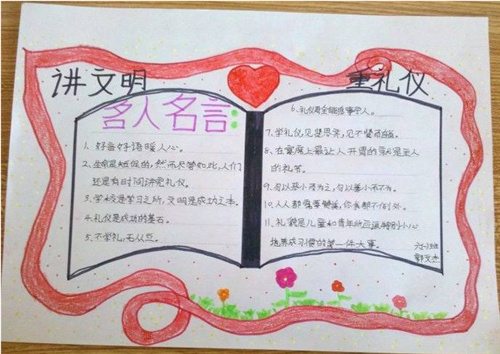 讲文明
重礼仪
名人名言:
1、好言好语暖人心。
2、生命是短促的,然而尽管如此,人们
还是有时间讲究礼仪。
3、学校是学习之所,文明是成功之本。
4、礼仪是成功的基石。
5、不学礼,无以立。
6、礼仪
7、学礼仪,见贤思齐,见不贤
8、在宴席上最让人开胃的就是主人
的礼节。
9、勿以恶小而为之,勿以善小而不为。
10、人人都
11、礼貌是儿童和青年所应该特别小心
地养成习惯的第一件大事。
六